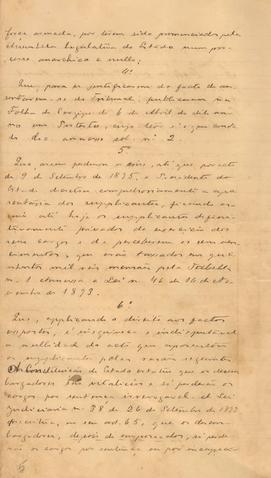 força armada, por terem sido pronunciados pela
Assembléa Legislativa do Estado num pro-
cesso anarchico e nullo.
4º
Que, para se justificarem do facto de au-
sentarem-se do Tribunal, publicaram na
Folha de Sergipe de 6 de Abril de
um Protesto, cujo teor é o que consta
do doc. annexo sob nº 2.
5º
Que, assim andaram os AA., até que por acto
de 9 de Setembro de 1895, o Presidente do
Estado decretou compulsoriamente a apo-
sentadoria dos supplicantes, ficando as-
sim até hoje os supplicantes defini-
tivamente privados do exercicio dos
seus cargos e de perceberem os seus ven-
cimentos, que eram taxados em qua-
trocentos mil réis mensaes pela Tabella
n. 1 annexa á Lei nº 46 de 16 de No-
vembro de 1893.
6º
Que, applicando o direito aos factos
expostos, é inequivoca e indisputavel
a nullidade do acto que aposentou
os supplicantes pelas razões seguintes:
A Constituição do Estado estatuiu que os desem-
bargadores são vitalicios e só perderão os
cargos por sentença irrevogavel. A Lei
Judiciaria n. 38 de 26 de Setembro de 1892
preceitúa, em seu art. 65, que os desem-
bargadores, depois de empossados, só perde-
rão os cargos por sentença ou por incapaci-